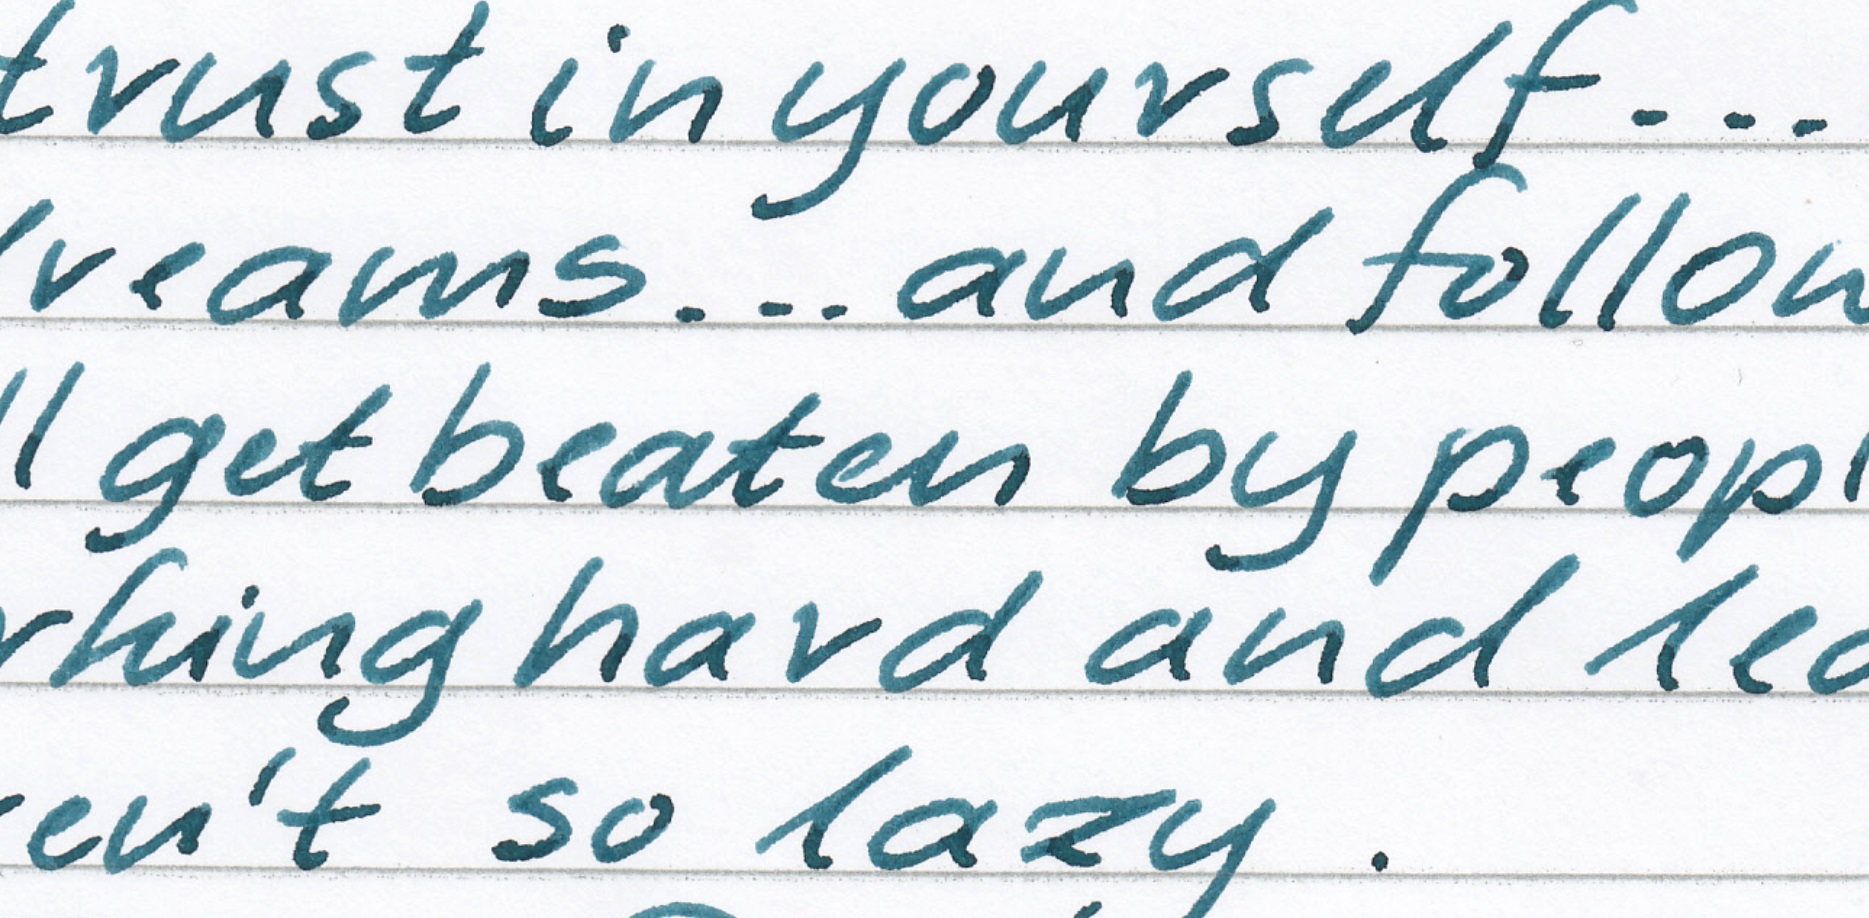 trust in yourself...
dreams... and follow
ll get beaten by peopl
rking hard and lea
ren't so lazy.